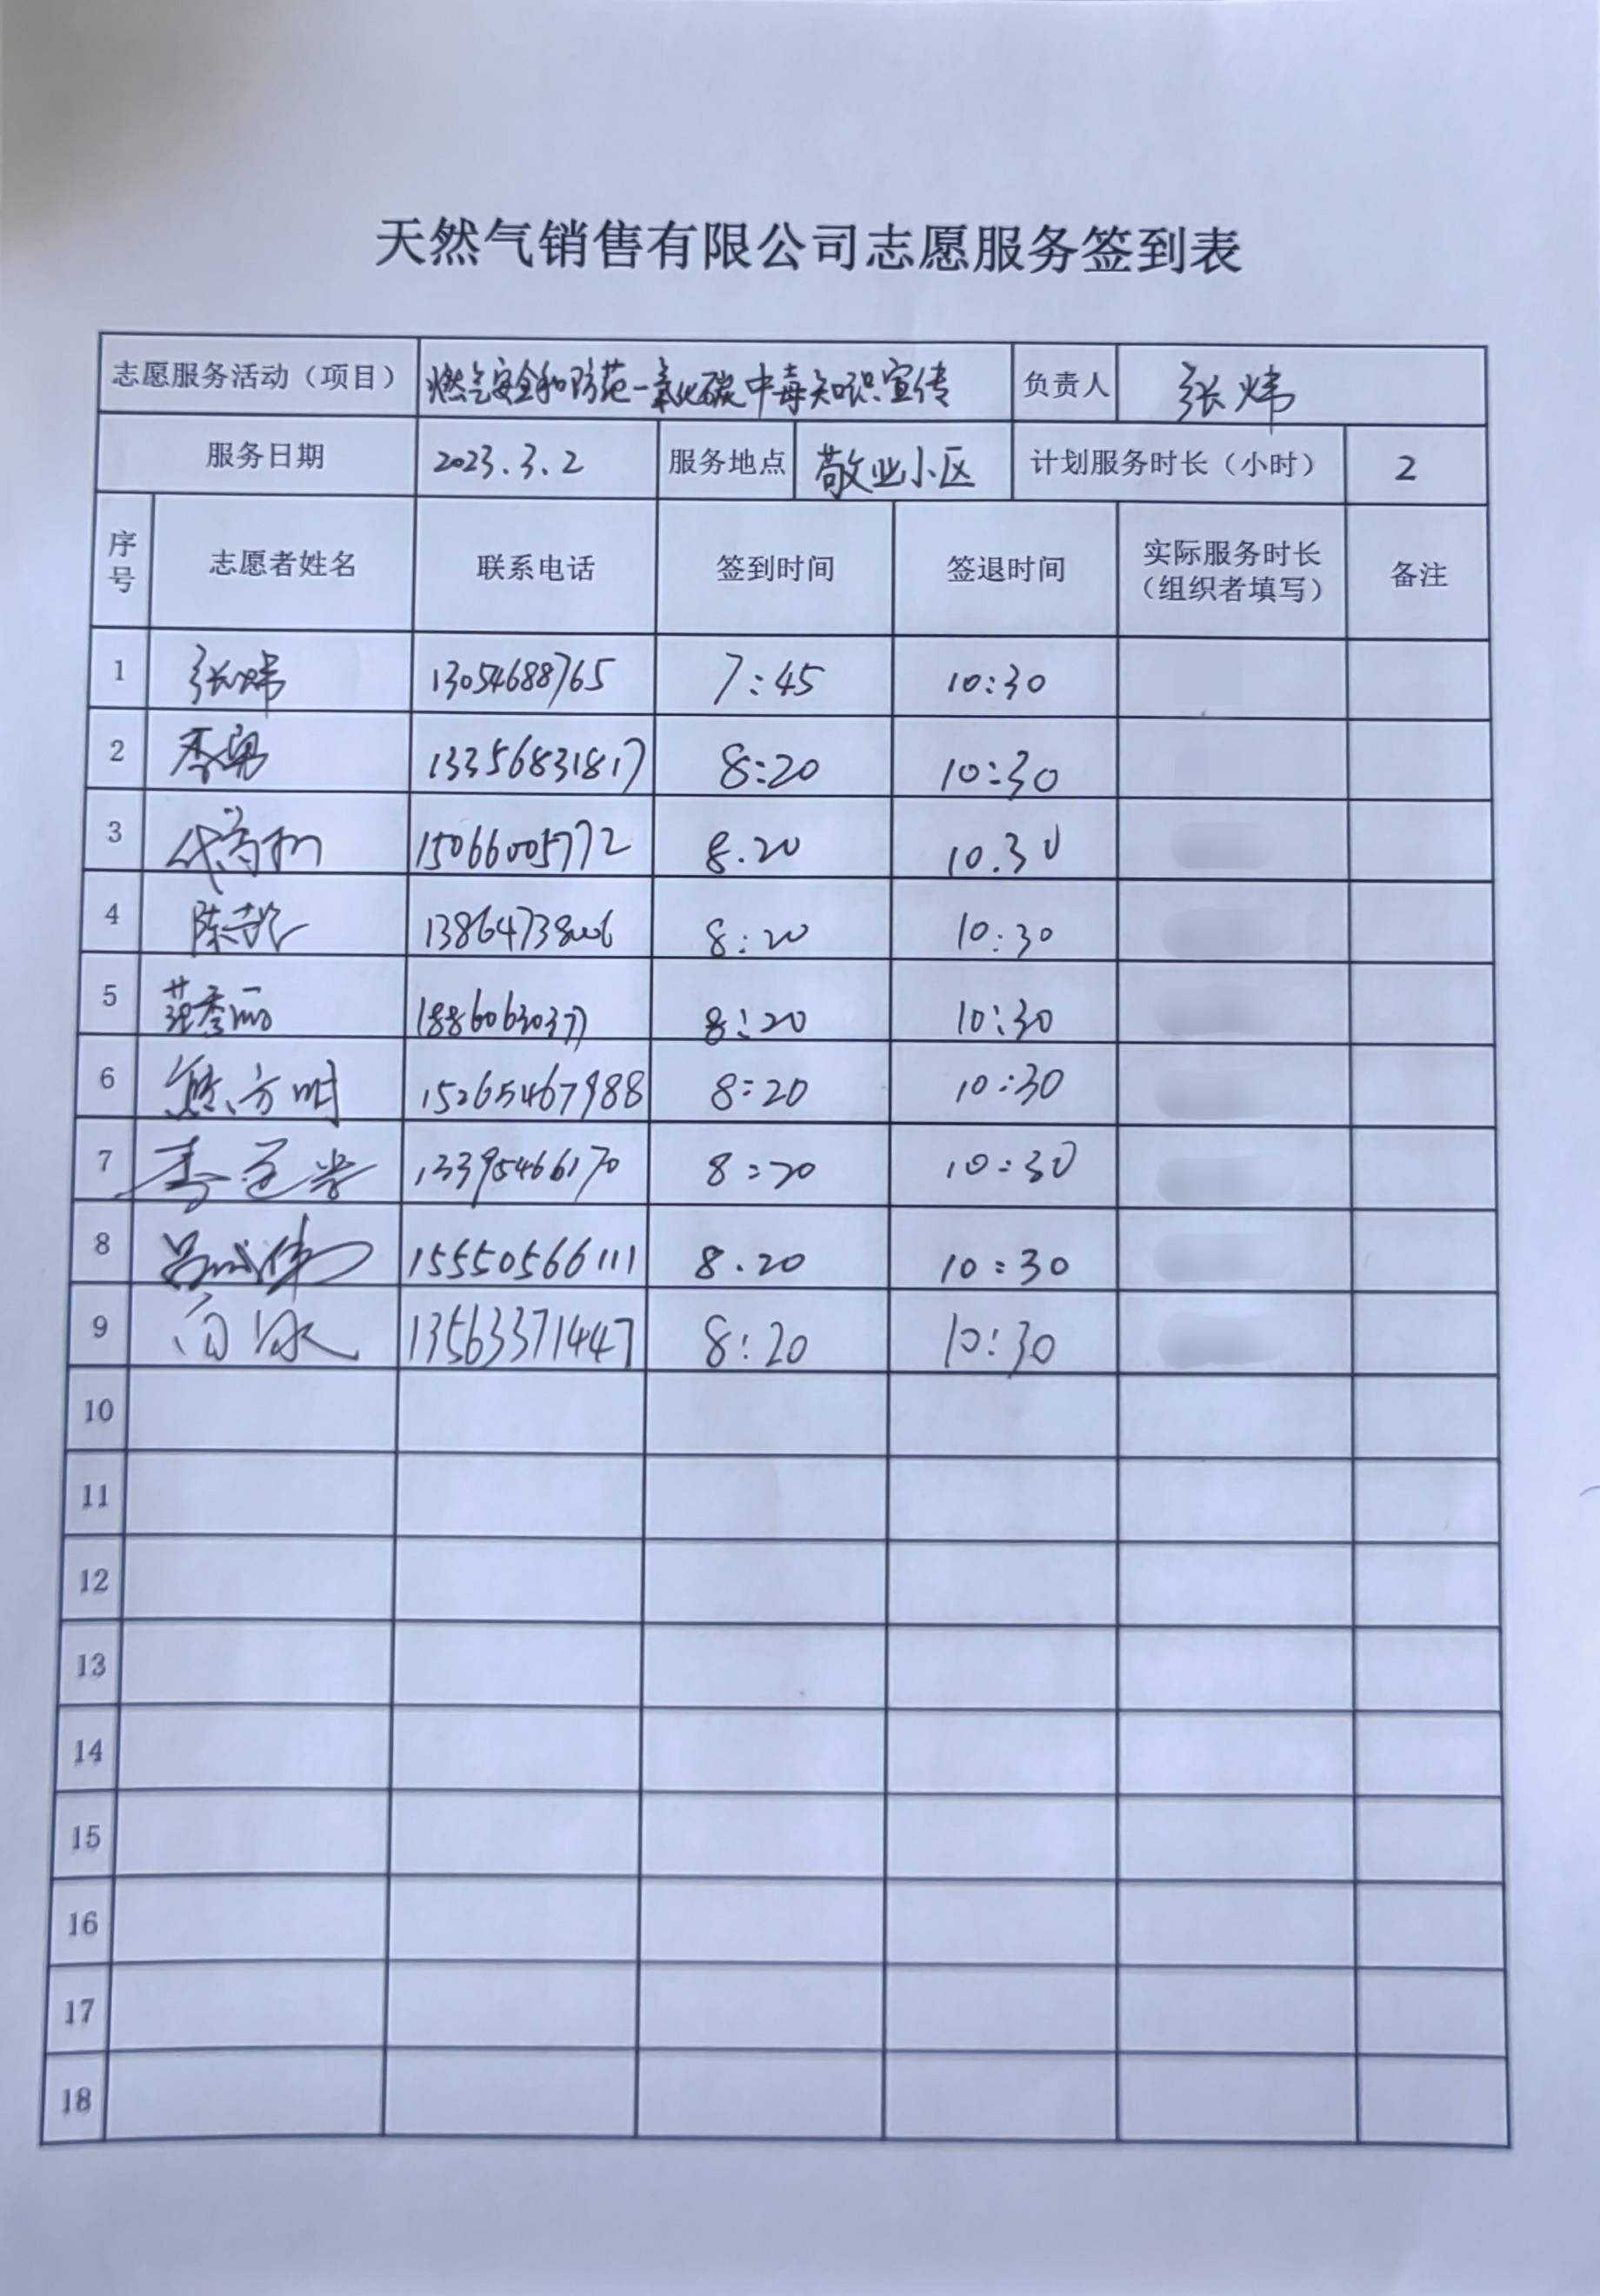 天然气销售有限公司志愿服务签到表
志愿服务活动（项目） 燃气安全和防范一氧化碳中毒知识宣传 负责人 张炜
服务日期 2023.3.2 服务地点 敬业小区 计划服务时长（小时） 2
序号 志愿者姓名 联系电话 签到时间 签退时间 实际服务时长（组织者填写） 备注
1 张炜 13054688765 7:45 10:30
2 李勇 13356831817 8:20 10:30
3 15066005772 8.20 10.30
4 13864738006 8:20 10:30
5 范秀丽 18860630377 8:20 10:30
6 熊方明 15265467988 8:20 10:30
7 13395466170 8:20 10:30
8 15550566111 8.20 10:30
9 13563371447 8:20 10:30
10
11
12
13
14
15
16
17
18